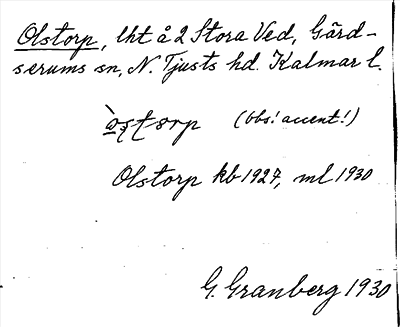 Olstorp, lht å 2 Stora Ved, Gärd-
serums sn, N. Tjusts hd. Kalmar l.
(Obs! accent!)
Olstorp kb 1927, ml 1930
G. Granberg 1930